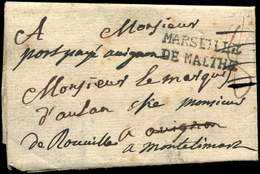 A Monsieur
port payé avignon
MARSEILLE
DE MALTHE
Monsieur le marquis
d'aulan chez monsieur
de Rouville a avignon
a montelimart